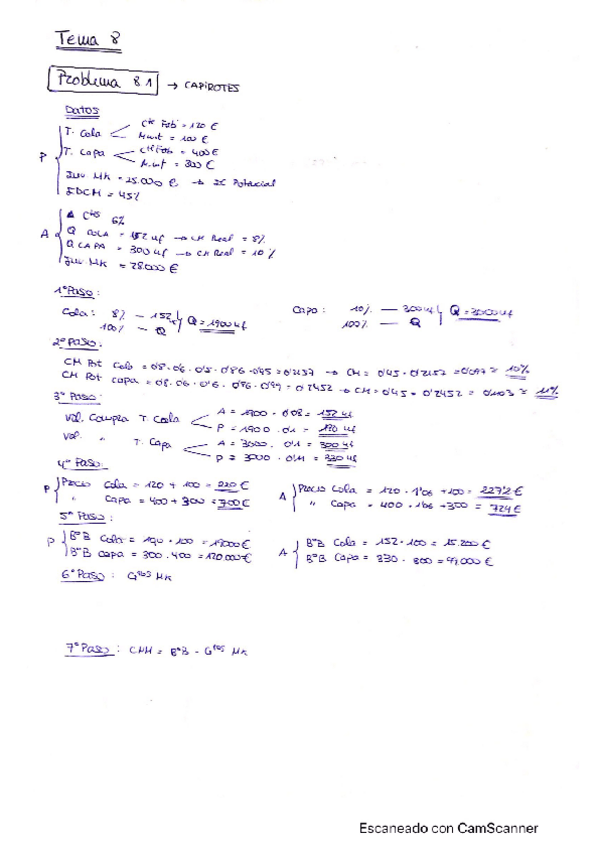 Tema 8
Problema 8.1 → CAPIROTES
DATOS
P { T. Cola < Cte Fab = 120 €
M.unt = 100 €
T. Capa < Cte Fab = 400 €
M.unt = 300 €
Inv MK = 25.000 € →
EDCM = 45%
A { Δ Ctes 6%
Q COLA = 152 uf → CM Real = 8%
Q CAPA = 300 uf → CM Real = 10%
Inv MK = 28.000 €
1º Paso:
Cola: 8% — 152 } Q = 1900 uf
100% — Q
Capa: 10% — 300 uf } Q = 3000 uf
100% — Q
2º Paso:
CM Pot Cola = 0'8 · 0'6 · 0'5 · 0'86 · 0'95 = 0'2157 → CM = 0'45 · 0'2157 = 0'097 ≈ 10%
CM Pot Capa = 0'8 · 0'6 · 0'6 · 0'86 · 0'99 = 0'2452 → CM = 0'45 · 0'2452 = 0'1103 ≈ 11%
3º Paso:
Vol. Compra T. Cola < A = 1900 · 0'08 = 152 uf
P = 1900 · 0'1 = 190 uf
Vol. " T. Capa < A = 3000 · 0'1 = 300 uf
P = 3000 · 0'11 = 330 uf
4º Paso:
P { Precio Cola = 120 + 100 = 220 €
" Capa = 400 + 300 = 700 €
A { Precio Cola = 120 · 1'06 + 100 = 227'2 €
" Capa = 400 · 1'06 + 300 = 724 €
5º Paso:
P { BºB Cola = 190 · 100 = 19000 €
BºB Capa = 300 · 400 = 120.000 €
A { BºB Cola = 152 · 100 = 15.200 €
BºB Capa = 330 · 300 = 99.000 €
6º Paso: Gtos MK
7º Paso: CMM = BºB - Gtos MK
Escaneado con CamScanner